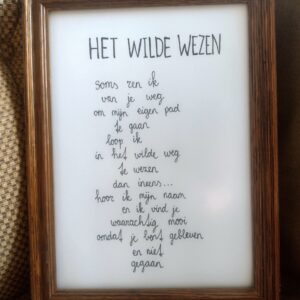 HET WILDE WEZEN
Soms ren ik
van je weg
om mijn eigen pad
te gaan
loop ik
in het wilde weg
te wezen
dan ineens...
hoor ik mijn naam
en ik vind je
waarachtig mooi
omdat je bent gebleven
en niet
gegaan